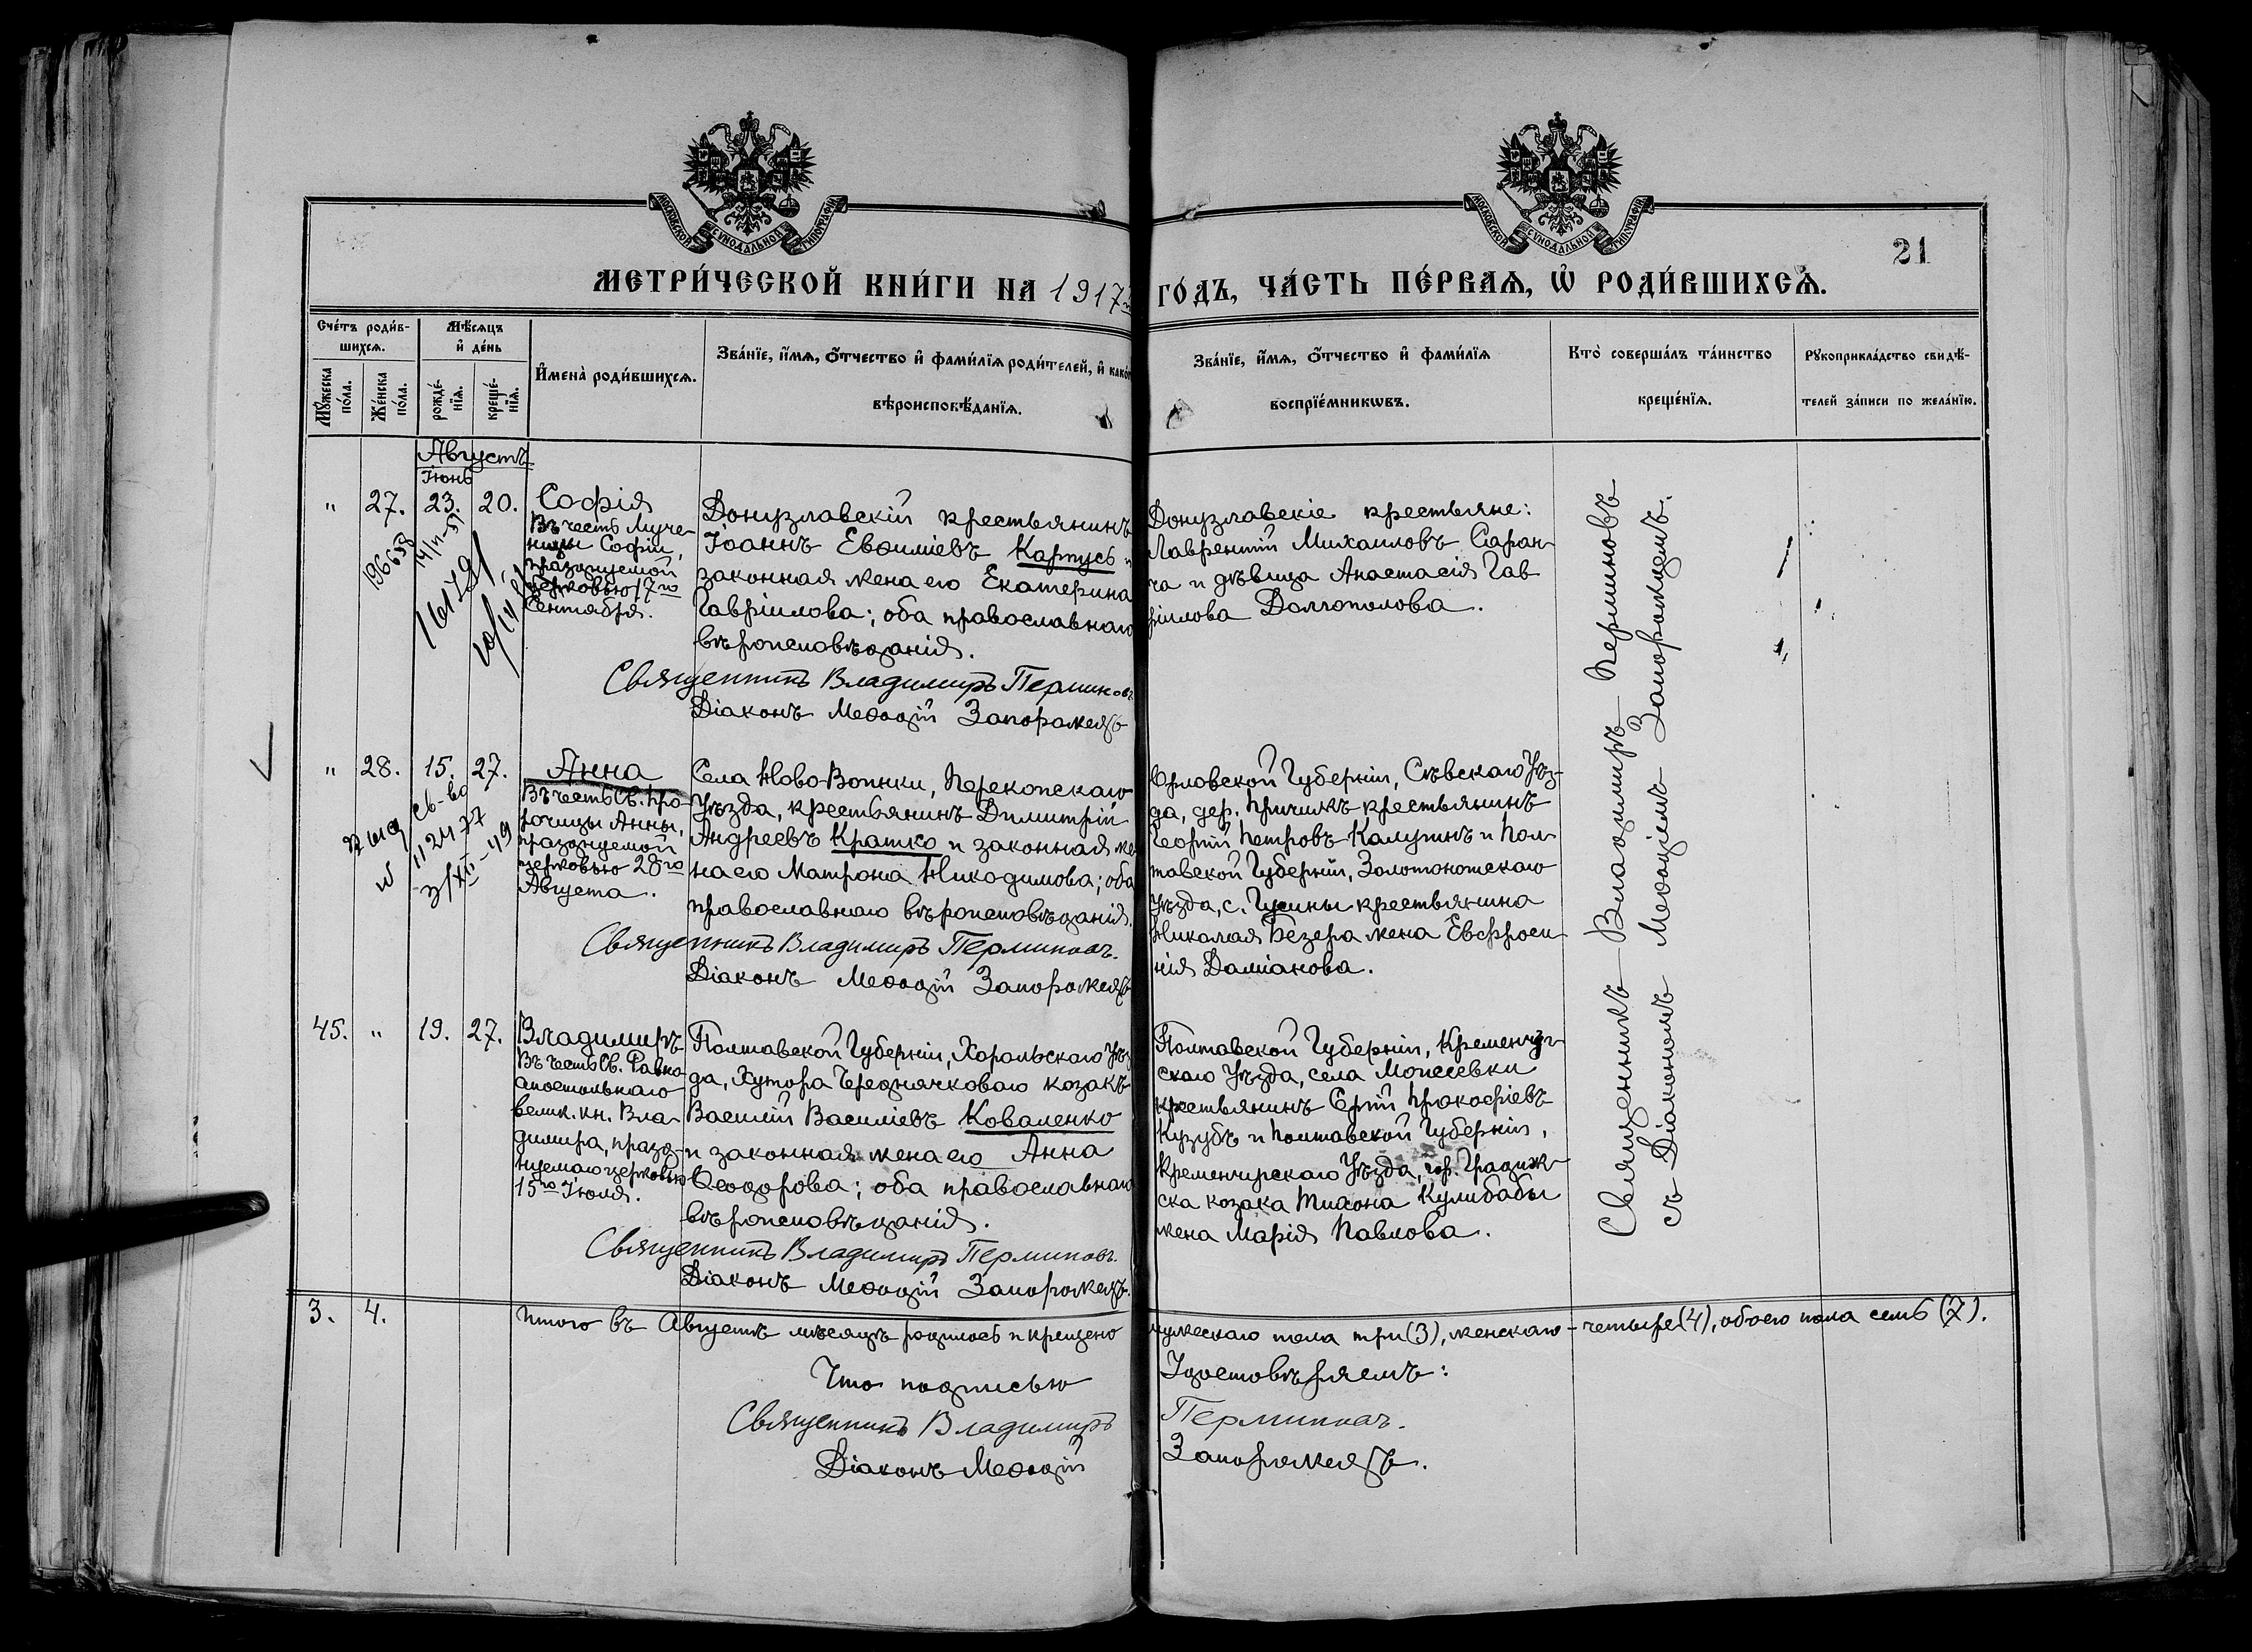 МОСКОВСКОЙ СѴНОДАЛЬНОЙ ТИПОГРАФІИ
МОСКОВСКОЙ СѴНОДАЛЬНОЙ ТИПОГРАФІИ
21
МЕТРИ́ЧЕСКОЙ КНИ́ГИ НА 1917 й
ГО́ДЪ, ЧА́СТЬ ПЕ́РВАѦ, Ѡ҆ РОДИ́ВШИХСѦ.
Сче́тъ роди́в-
шихсѧ.
Мꙋ́жеска
по́ла.
Же́нска
по́ла.
Мѣ́сѧцъ
и҆ де́нь
рожде́-
нїѧ.
креще́-
нїѧ.
И҆мена̀ роди́вшихсѧ.
Зва́нїе, и҆́мѧ, ѻ҆́тчество и҆ фами́лїѧ роди́телей, и҆ како́гѡ
вѣроисповѣ́данїѧ.
Зва́нїе, и҆́мѧ, ѻ҆́тчество и҆ фами́лїѧ
воспрїе́мникѡвъ.
Кто̀ соверша́лъ та́инство
креще́нїѧ.
Рꙋкоприкла́дство свидѣ́-
телей за́писи по жела́нїю.
Августъ
Іюнь
" 27. 23. 20.
196658
14/II-51
16179
Софія
Въ честь Муче-
ницы Софіи,
празднуемой
церковью 17го
Сентября.
Донузлавскій крестьянинъ
Іоаннъ Евѳиміевъ Карпусь и
законная жена его Екатерина
Гавріилова; оба православнаго
вѣроисповѣданія.
Священникъ Владимиръ Перминовъ
Діаконъ Меѳодій Запорожецъ
Донузлавскіе крестьяне:
Лаврентій Михаиловъ Саран-
ча и дѣвица Анастасія Гав-
ріилова Долгополова.
" 28. 15. 27.
св-во
112477
3/XII-49
Анна
Въ честь Св. Про-
рочицы Анны,
празднуемой
церковью 28го
Августа.
Села Ново-Воинки, Перекопскаго
Уѣзда, крестьянинъ Димитрій
Андреевъ Кратко и законная же-
на его Матрона Никодимова; оба
православнаго вѣроисповѣданія.
Священникъ Владимиръ Перминовъ.
Діаконъ Меѳодій Запорожецъ
Орловской Губерніи, Сѣвскаго Уѣз-
да, дер. крестьянинъ
Георгій Петровъ Калугинъ и Пол-
тавской Губерніи, Золотоношскаго
Уѣзда, с. крестьянина
Николая Безера жена Евфроси-
нія Даміанова.
45. " 19. 27.
Владимиръ
Въ честь Св. Равно-
апостольнаго
велик. кн. Вла-
димира, празд-
нуемаго церковью
15го Іюля.
Полтавской Губерніи, Хорольскаго Уѣз
да, Хутора Середнячковаго козакъ
Василій Василіевъ Коваленко
и законная жена его Анна
Ѳеодорова; оба православнаго
вѣроисповѣданія.
Священникъ Владимиръ Перминовъ.
Діаконъ Меѳодій Запорожецъ.
Полтавской Губерніи, Кременчуг-
скаго Уѣзда, села Мопсеевки
крестьянинъ Сергій Прокофіевъ
Кузубъ и Полтавской Губерніи,
Кременчугскаго Уѣзда, гор. Градиж-
ска козака Тихона Кулибабы
жена Марія Павлова.
Священникъ Владимиръ Перминовъ
съ Діакономъ Меѳодіемъ Запорожцемъ.
3. 4. Итого въ Августѣ мѣсяцѣ родилось и крещено
мужескаго пола три (3), женскаго - четыре (4), обоего пола семь (7).
Что подписью
Удостовѣряемъ:
Священникъ Владимиръ
Перминовъ.
Діаконъ Меѳодій
Запорожецъ.